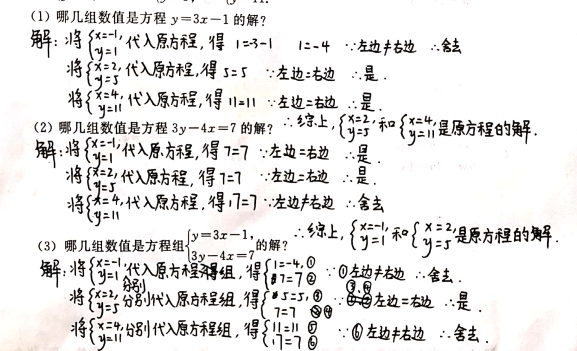 (1) 哪几组数值是方程 y=3x-1 的解?
解:将{x=-1, y=1 代入原方程,得 1=-3-1 1=-4 ∵左边≠右边 ∴舍去
将{x=2, y=5 代入原方程,得 5=5 ∵左边=右边 ∴是.
将{x=4, y=11 代入原方程,得 11=11 ∵左边=右边 ∴是.
∴综上,{x=2, y=5 和{x=4, y=11 是原方程的解.
(2) 哪几组数值是方程 3y-4x=7 的解?
解:将{x=-1, y=1 代入原方程,得 7=7 ∵左边=右边 ∴是.
将{x=2, y=5 代入原方程,得 7=7 ∵左边=右边 ∴是.
将{x=4, y=11 代入原方程,得 17=7 ∵左边≠右边 ∴舍去
∴综上,{x=-1, y=1 和{x=2, y=5 是原方程的解.
(3) 哪几组数值是方程组{y=3x-1, 3y-4x=7 的解?
解:将{x=-1, y=1 分别代入原方程组,得{1=-4,① 7=7 ② ∵①左边≠右边 ∴舍去.
将{x=2, y=5 分别代入原方程组,得{5=5,③ 7=7 ④ ∵③④左边=右边 ∴是.
将{x=4, y=11 分别代入原方程组,得{11=11 ⑤ 17=7 ⑥ ∵⑥左边≠右边 ∴舍去.